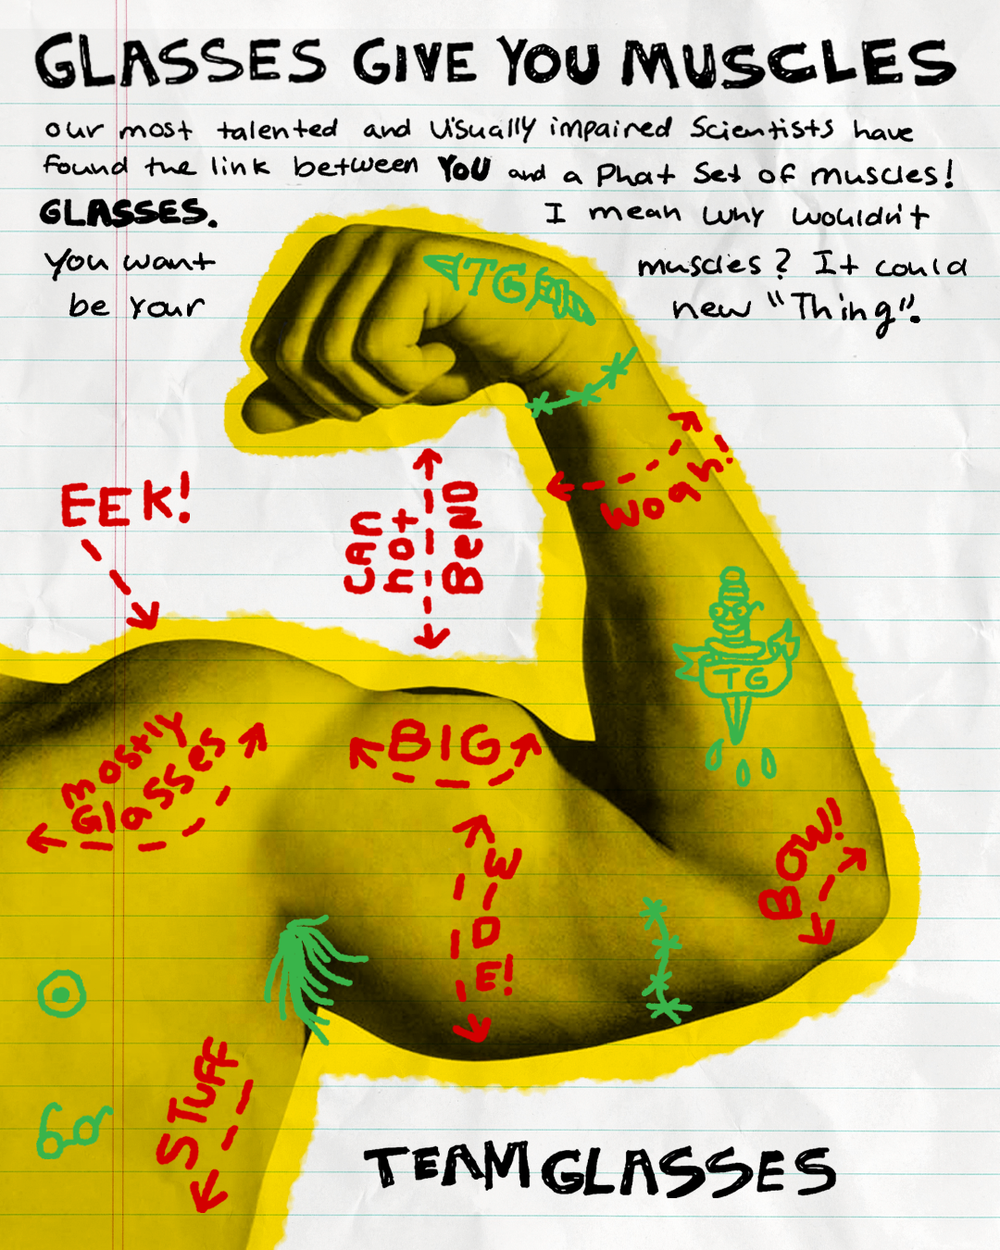 GLASSES GIVE YOU MUSCLES
our most talented and visually impaired Scientists have
found the link between YOU and a Phat Set of muscles!
GLASSES. I mean why wouldn't
You want muscles? It could
be Your new "Thing".
TG
EEK!
Woah!
CAN
not
BeND
TG
mostly
Glasses
BIG
WIDE!
BOW!
STUFF
TEAM GLASSES